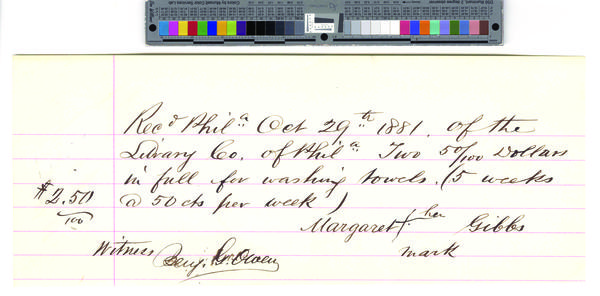 Rec.d Phil.a Oct 29th 1881. of the
Library Co. of Phil.a Two 50/100 Dollars
in full for washing towels. (5 weeks
@ 50 cts per week)
$2.50/100
Margaret + her Gibbs
mark
Witness Benj. G. Owen